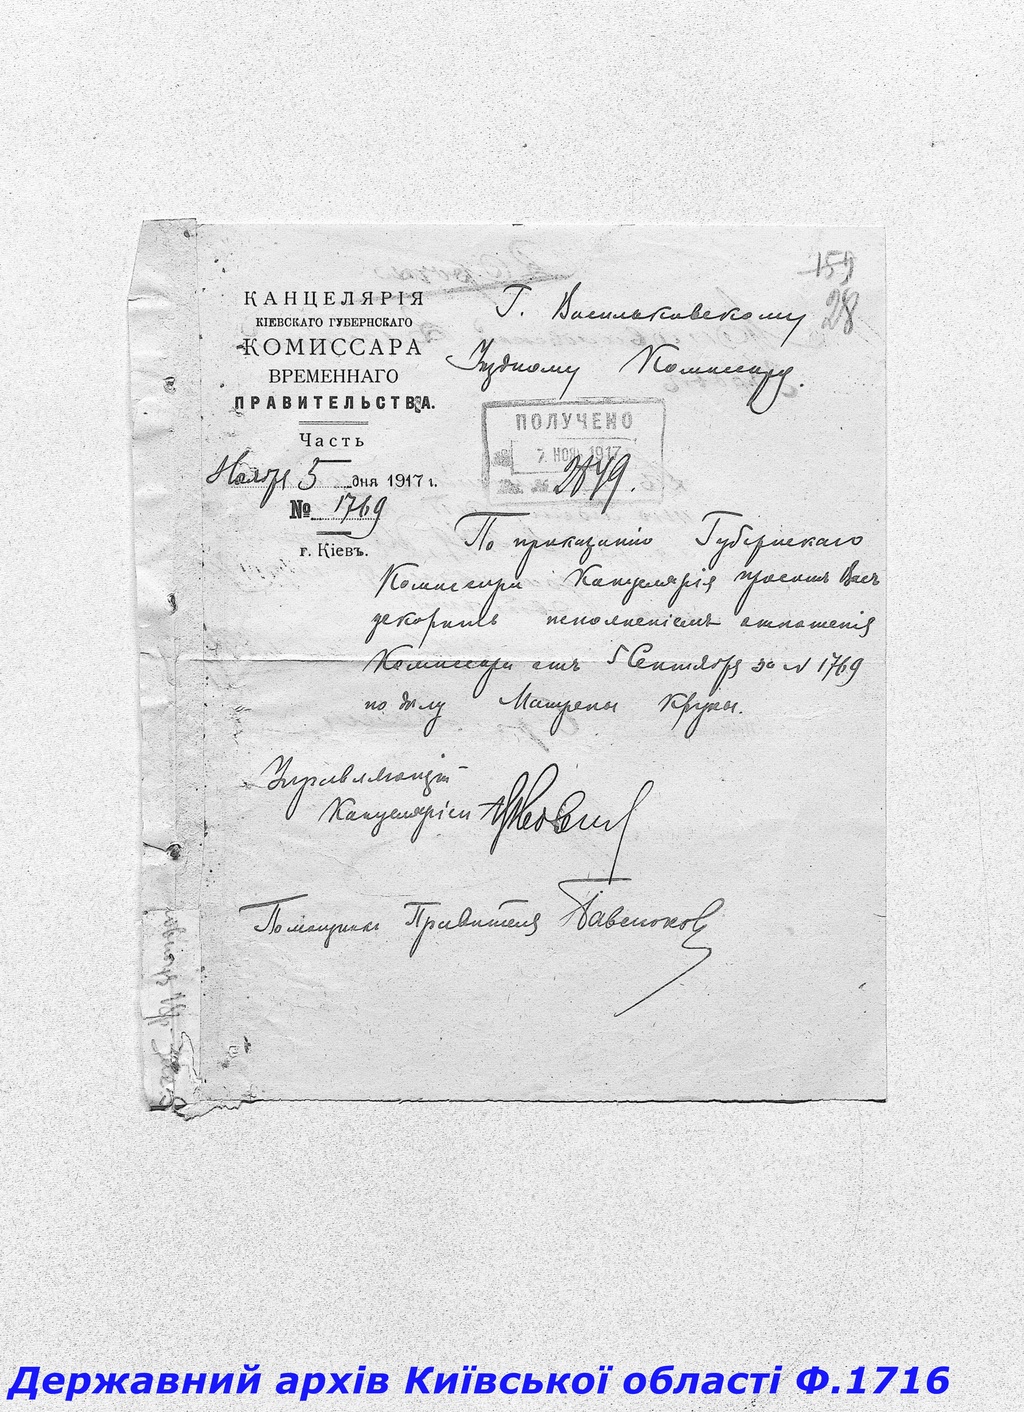 159
28
КАНЦЕЛЯРІЯ
КІЕВСКАГО ГУБЕРНСКАГО
КОМИССАРА
ВРЕМЕННАГО
ПРАВИТЕЛЬСТВА.
Часть
Ноября 5 дня 1917 г.
№ 1769
г. Кіевъ.
Г. Васильковскому
Уѣздному Комиссару.
ПОЛУЧЕНО
7 НОЯ 1917
2849.
По приказанію Губернскаго
Комиссара Канцелярія проситъ Васъ
ускорить исполненіемъ отношенія
Комиссара отъ 5 Сентября за № 1769
по дѣлу Матрены
Управляющій
Канцеляріей
Помощникъ Правителя
Державний архів Київської області Ф.1716